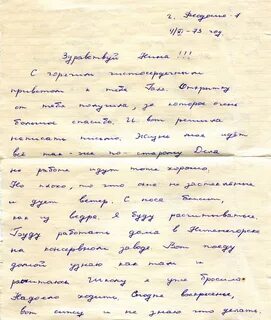 г. Феодосия-1
4/VI - 73 год
Здравствуй Нина!!!
С горячим чистосердечным
приветом к тебе Галя. Открытку
от тебя получила, за которое очень
большое спасибо. И вот решила
написать письмо. Жизнь моя идёт
всё так-же по-старому Дела
на работе идут тоже хорошо.
Но плохо, то что окна не застекленные
и дует ветер. С носа бежит,
как из ведра. Я буду рассчитываться.
Буду работать дома в Нижнегорске
на консервном заводе Вот поеду
домой узнаю как там и
рассчитаюсь Школу я уже бросила.
Надоело ходить. Сегодня воскресенье,
вот сижу и не знаю что делать.